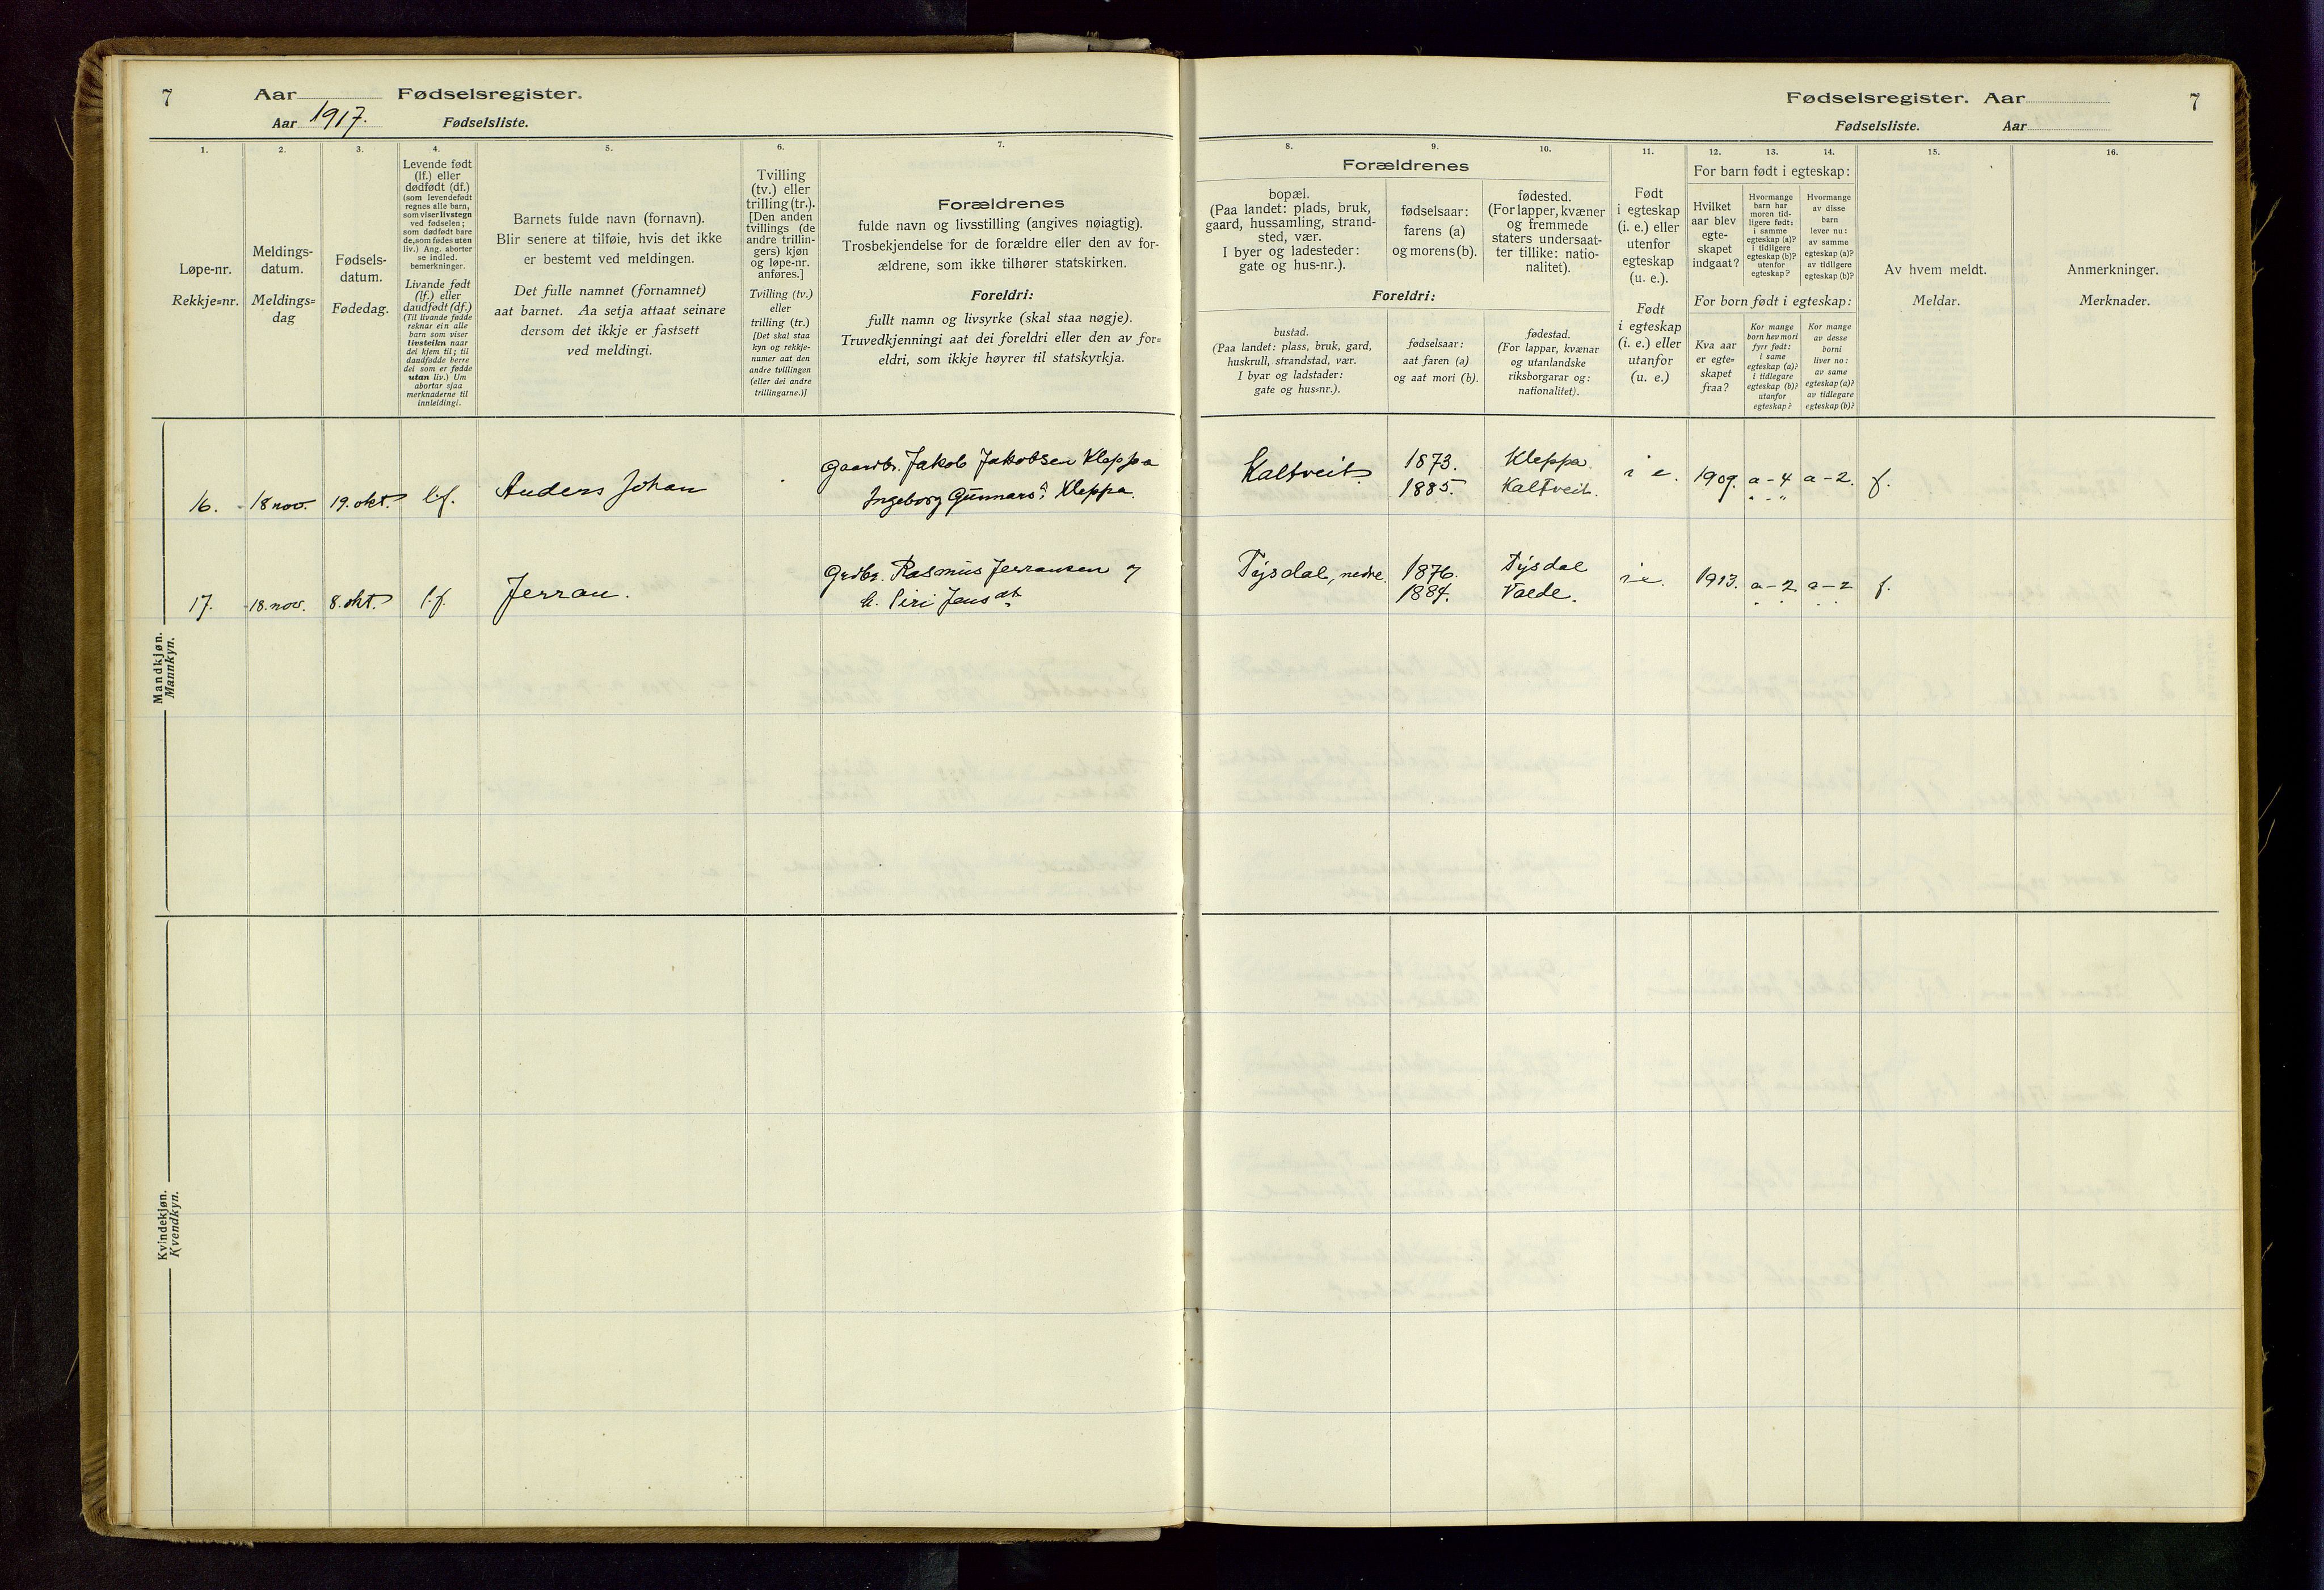 7 Aar Fødselsregister.
Aar 1917. Fødselsliste.
Fødselsregister. Aar 7
Fødselsliste. Aar
1.
Løpe-nr.
Rekkje=nr.
2.
Meldings-
datum.
Meldings=
dag
3.
Fødsels-
datum.
Fødedag.
4.
Levende født
(lf.) eller
dødfødt (df.)
(som levendefødt
regnes alle barn,
som viser livstegn
ved fødselen;
som dødfødt bare
de, som fødes uten
liv.) Ang. aborter
se indled.
bemerkninger.
Livande født
(lf.) eller
daudfødt (df.)
(Til livande fødde
reknar ein alle
barn som viser
livsteikn naar
dei kjem til; til
daudfødde berre
dei som er fødde
utan liv.) Um
abortar sjaa
merknaderne til
innleidingi.
5.
Barnets fulde navn (fornavn).
Blir senere at tilføie, hvis det ikke
er bestemt ved meldingen.
Det fulle namnet (fornamnet)
aat barnet. Aa setja attaat seinare
dersom det ikkje er fastsett
ved meldingi.
6.
Tvilling
(tv.) eller
trilling (tr.).
[Den anden
tvillings (de
andre trillin-
gers) kjøn
og løpe-nr.
anføres.]
Tvilling (tv.)
eller
trilling (tr.)
[Det skal staa
kyn og rekkje-
numer aat den
andre tvillingen
(eller dei andre
trillingarne.)]
7.
Forældrenes
fulde navn og livsstilling (angives nøiagtig).
Trosbekjendelse for de forældre eller den av for-
ældrene, som ikke tilhører statskirken.
Foreldri:
fullt namn og livsyrke (skal staa nøgje).
Truvedkjenningi aat dei foreldri eller den av for=
eldri, som ikkje høyrer til statskyrkja.
8.
Forældrenes
bopæl.
(Paa landet: plads, bruk,
gaard, hussamling, strand-
sted, vær.
I byer og ladesteder:
gate og hus-nr.).
Foreldri:
bustad.
(Paa landet: plass, bruk, gard,
huskrull, strandstad, vær.
I byar og ladstader:
gate og hus=nr.).
9.
fødselsaar:
farens (a)
og morens (b).
fødselsaar:
aat faren (a)
og aat mori (b).
10.
fødested.
(For lapper, kvæner
og fremmede
staters undersaat-
ter tillike: natio-
nalitet).
fødestad.
(For lappar, kvænar
og utanlandske
riksborgarar og:
nationalitet).
11.
Født
i egteskap
(i. e.) eller
utenfor
egteskap
(u. e.).
Født
i egteskap
(i. e.) eller
utanfor
(u. e.)
12. 13. 14.
For barn født i egteskap:
Hvilket
aar blev
egte-
skapet
indgaat?
Hvormange
barn har
moren tid-
ligere født:
i samme
egteskap (a)?
i tidligere
egteskap (b)?
utenfor
egteskap?
Hvormange
av disse
barn
lever nu:
av samme
egteskap (a)?
av tidligere
egteskap (b)?
For born født i egteskap:
Kva aar
er egte=
skapet
fraa?
Kor mange
born hev mori
fyrr født:
i same
egteskap (a)?
i tidlegare
egteskap (b)?
utanfor
egteskap?
Kor mange
av desse
borni
liver no:
av same
egteskap (a)?
av tidlegare
egteskap (b)?
15.
Av hvem meldt.
Meldar.
16.
Anmerkninger.
Merknader.
Mandkjøn.
Mannkyn.
16. 18 nov. 19. okt. l.f. Anders Johan
Gaardbr. Jakob Jakobsen Kleppa
Ingeborg Gunnars? Kleppa.
Kaltveit 1873. Kleppa. i e. 1909. a-4 a-2. f.
1885. Kaltveit.
17. 18. nov. 8. okt. l.f. Jerran.
Grdbr. Rasmus Jerransen og
h. Siri Jensdt
Tysdal, nedre. 1876. Tysdal i e. 1913. a-2 a-2 f.
1884. Valde.
Kvindekjøn.
Kvendkyn.